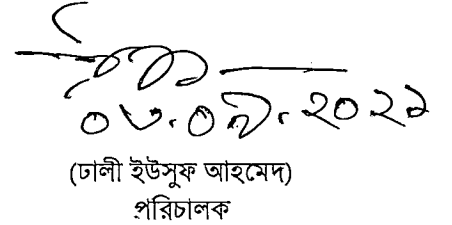 ০৬.০৯.২০২১
(ঢালী ইউসুফ আহমেদ)
পরিচালক